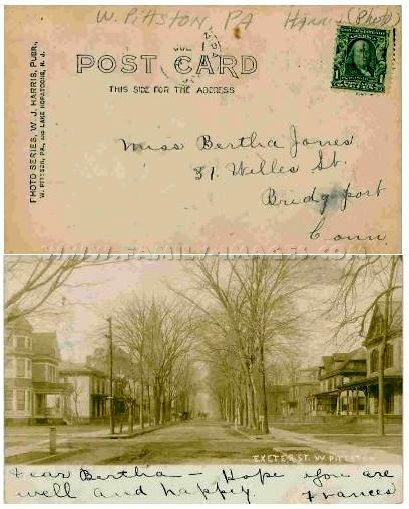 W. Pittston, PA Harris (Photo)
JUL
1
POST CARD
THIS SIDE FOR THE ADDRESS
PHOTO SERIES, W. J. HARRIS, PUBR.,
W. PITTSTON, PA., AND LAKE HOPATCONG, N. J.
1
Miss Bertha Jones
81. Willes St.
Bridgeport
Conn.
WWW.FAMILY-IMAGES.COM
EXETER ST. W. PITTSTON
Dear Bertha - Hope you are
well and happy. Frances